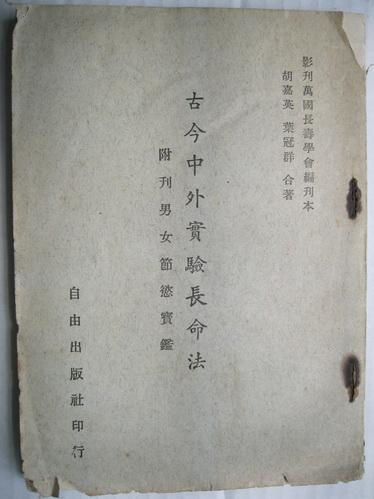 影刊萬國長壽學會編刊本
胡嘉英 葉冠群 合著
古今中外實驗長命法
附刊男女節慾寶鑑
自由出版社印行